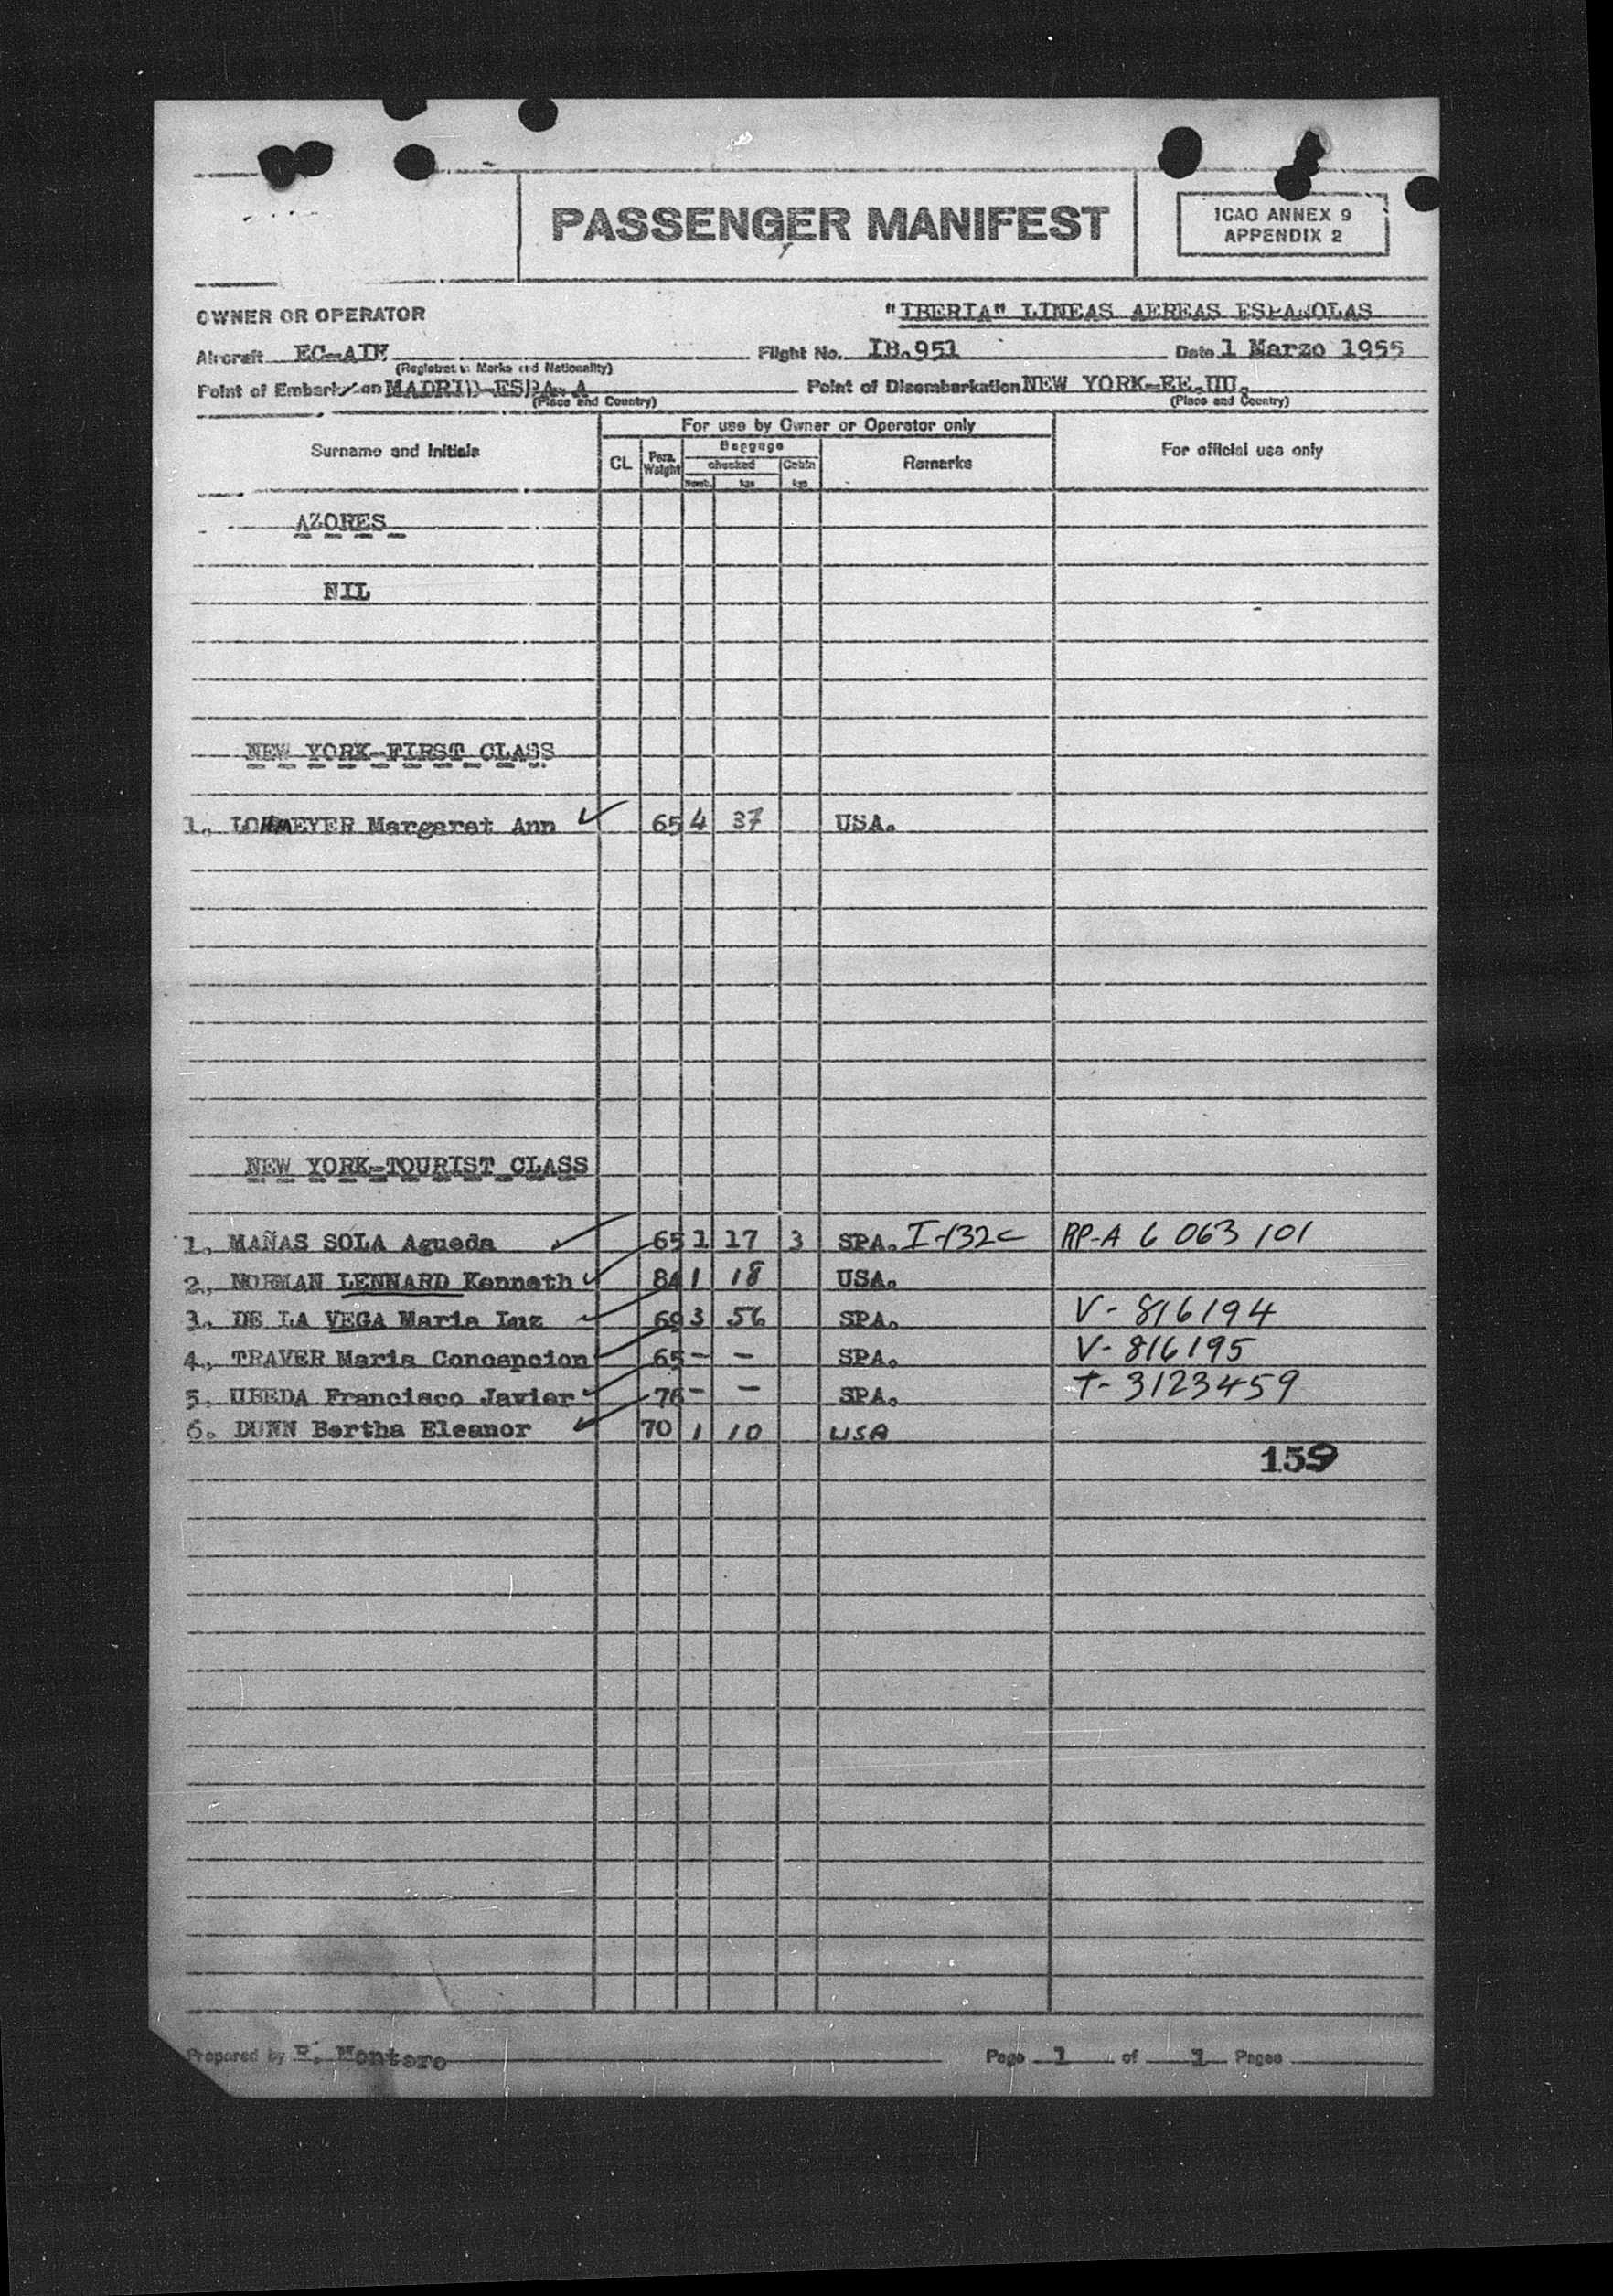 PASSENGER MANIFEST
ICAO ANNEX 9
APPENDIX 2
OWNER OR OPERATOR "IBERIA" LINEAS AEREAS ESPAÑOLAS
Aircraft Flight No. IB.951 Date 1 Marzo 1955
(Registration Marks and Nationality)
Point of Embarkation MADRID-ESPAÑA Point of Disembarkation NEW YORK-EE.UU.
(Place and Country) (Place and Country)
For use by Owner or Operator only
Surname and Initials CL Pers. Weight Baggage Remarks For official use only
checked Cabin
Numb. kgs kgs
AZORES
NIL
NEW YORK-FIRST CLASS
1. LOHMEYER Margaret Ann 65 4 37 USA.
NEW YORK-TOURIST CLASS
1. MAÑAS SOLA Agueda 65 1 17 3 SPA. I-132c RP-A 6 063 101
2. NORMAN LENNARD Kenneth 84 1 18 USA.
3. DE LA VEGA Maria Luz 69 3 56 SPA. V-816194
4. TRAVER Maria Concepcion 65 - - SPA. V-816195
5. UBEDA Francisco Javier 76 - - SPA. T-3123459
6. DUNN Bertha Eleanor 70 1 10 USA
159
Prepared by Montero Page 1 of 1 Pages